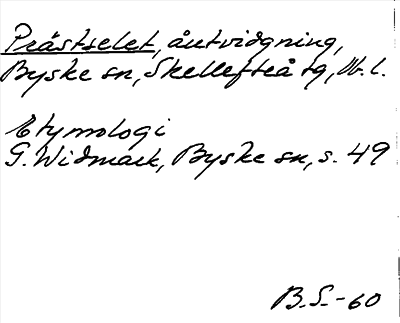 Prästselet, åutvidgning,
Byske sn, Skellefteå tg, Vb. l.
Etymologi
G. Widmark, Byske sn, s. 49
B.S.-60